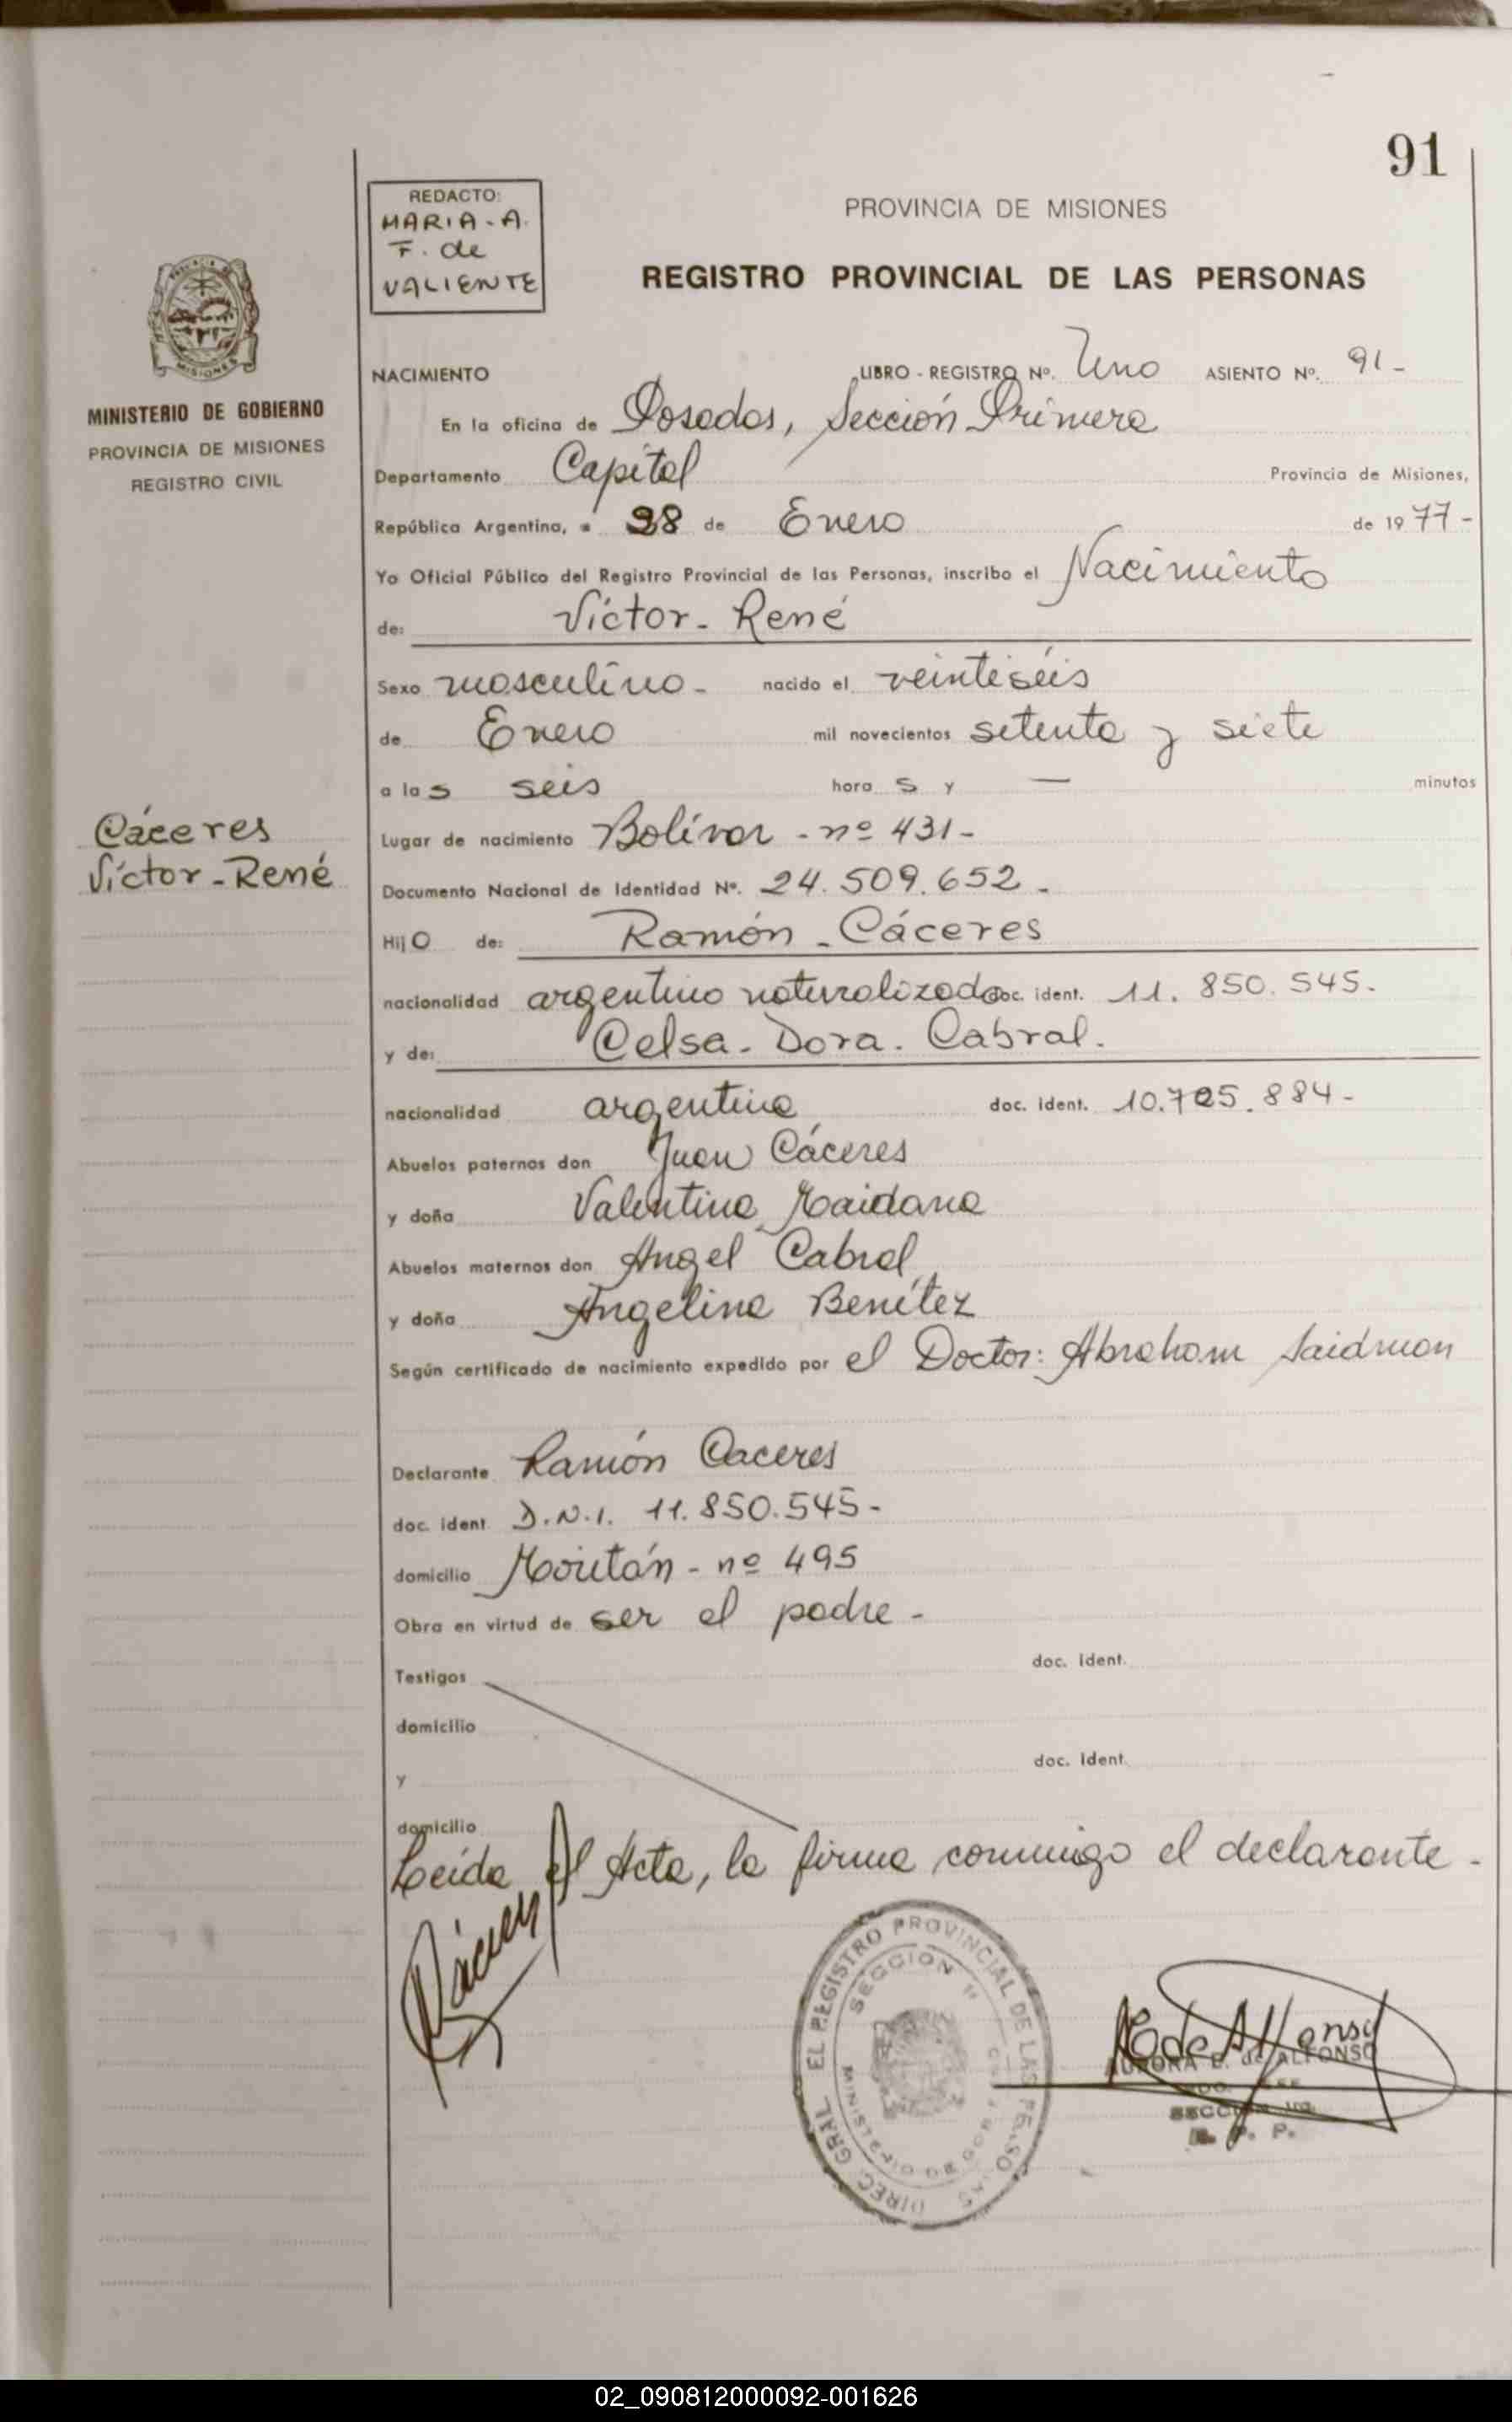 91
REDACTO:
MARIA-A.
F. de
VALIENTE
PROVINCIA DE MISIONES
REGISTRO PROVINCIAL DE LAS PERSONAS
MISIONES
MINISTERIO DE GOBIERNO
PROVINCIA DE MISIONES
REGISTRO CIVIL
NACIMIENTO LIBRO - REGISTRO Nº. Uno ASIENTO Nº. 91-
En la oficina de Posadas, Sección Primera
Departamento Capital Provincia de Misiones,
República Argentina, a 28 de Enero de 1977-
Yo Oficial Público del Registro Provincial de las Personas, inscribo el Nacimiento
de: Víctor-René
Sexo masculino- nacido el veintiséis
de Enero mil novecientos setenta y siete
a las seis horas y — minutos
Cáceres
Víctor-René
Lugar de nacimiento Bolívar - nº 431-
Documento Nacional de Identidad Nº. 24.509.652-
Hijo de: Ramón-Cáceres
nacionalidad argentino naturalizado doc. ident. 11.850.545.
y de: Celsa-Dora. Cabral.
nacionalidad argentina doc. ident. 10.725.884-
Abuelos paternos don Juan Cáceres
y doña Valentina Maidana
Abuelos maternos don Angel Cabral
y doña Angelina Benítez
Según certificado de nacimiento expedido por el Doctor: Abraham Saidman
Declarante Ramón Caceres
doc. ident. D.N.I. 11.850.545-
domicilio - nº 495
Obra en virtud de ser el padre-
Testigos doc. ident.
domicilio
y doc. ident.
domicilio
Leída el Acta, la firma conmigo el declarante-
Cáceres
DIREC. GRAL. EL REGISTRO PROVINCIAL DE LAS PERSONAS
SECCION 1ª
MINISTERIO DE GOB.
AURORA E. de ALFONSO
SECCION 1ra
R. P. P.
02_090812000092-001626